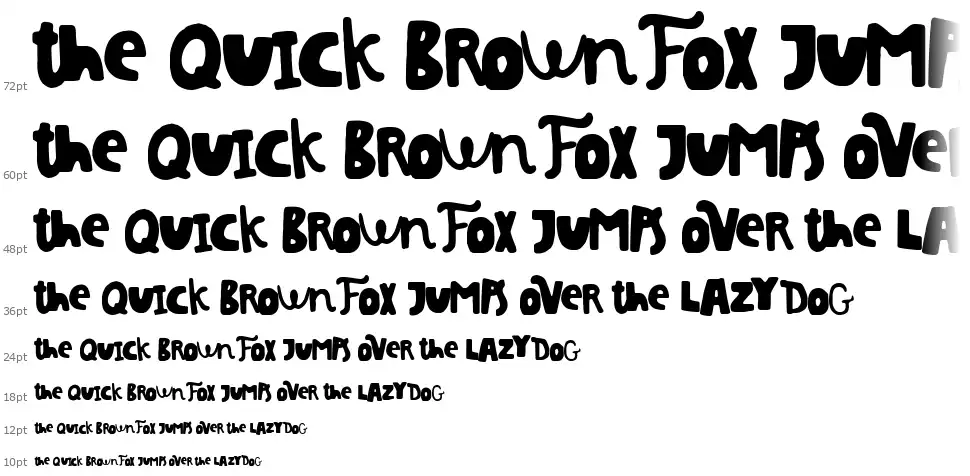 72pt the QUICK BROwn FOX JUMP
60pt the QUICK BROwn FOX JUMPS OVE
48pt the QUICK BROwn FOX JUMPS OVER the LA
36pt the QUICK BROwn FOX JUMPS OVER the LAZY DOG
24pt the QUICK BROwn FOX JUMPS OVER the LAZY DOG
18pt the QUICK BROwn FOX JUMPS OVER the LAZY DOG
12pt the QUICK BROwn FOX JUMPS OVER the LAZY DOG
10pt the QUICK BROwn FOX JUMPS OVER the LAZY DOG